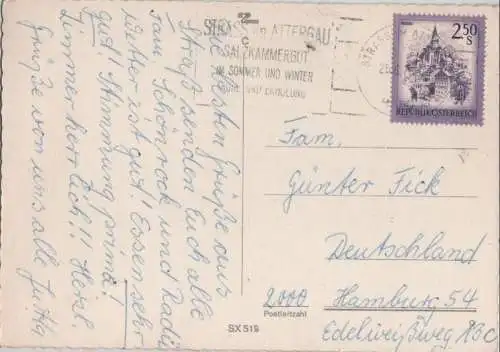 STRASS im ATTERGAU
SALZKAMMERGUT
IM SOMMER UND WINTER
RUHE UND ERHOLUNG
2.50
S
REPUBLIK ÖSTERREICH
Die besten Grüße aus
Straß senden Euch alle
Fam. Schönrock und
Wetter ist gut! Essen sehr
gut! Stimmung prima!
Zimmer herrlich!! Herzl.
Grüße von uns alle Jutta
Fam.
Günter Fick
Deutschland
2000 Hamburg 54
Postleitzahl
Edelweißweg 13C
SX 519